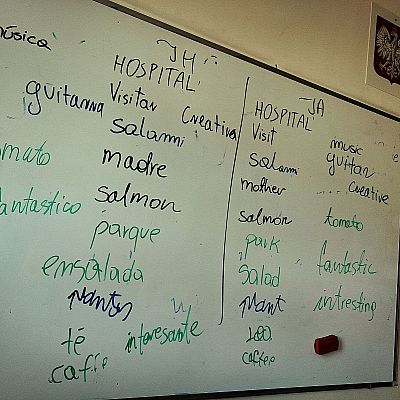 música
JH
HOSPITAL
guitarra
Visitar
Creativa
salami
omato
madre
antastico
salmon
parque
ensalada
té
interesante
caffe
JA
HOSPITAL
Visit
music
salami
guitar
mother
creative
salmon
tomato
park
fantastic
salad
plant
intresting
coffee